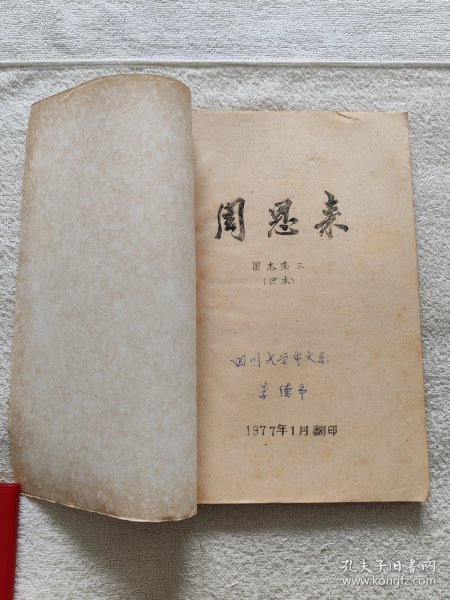 周恩来
(日本)
四川大学中文系
李德
1977年1月翻印
孔夫子旧书网
www.kongfz.com